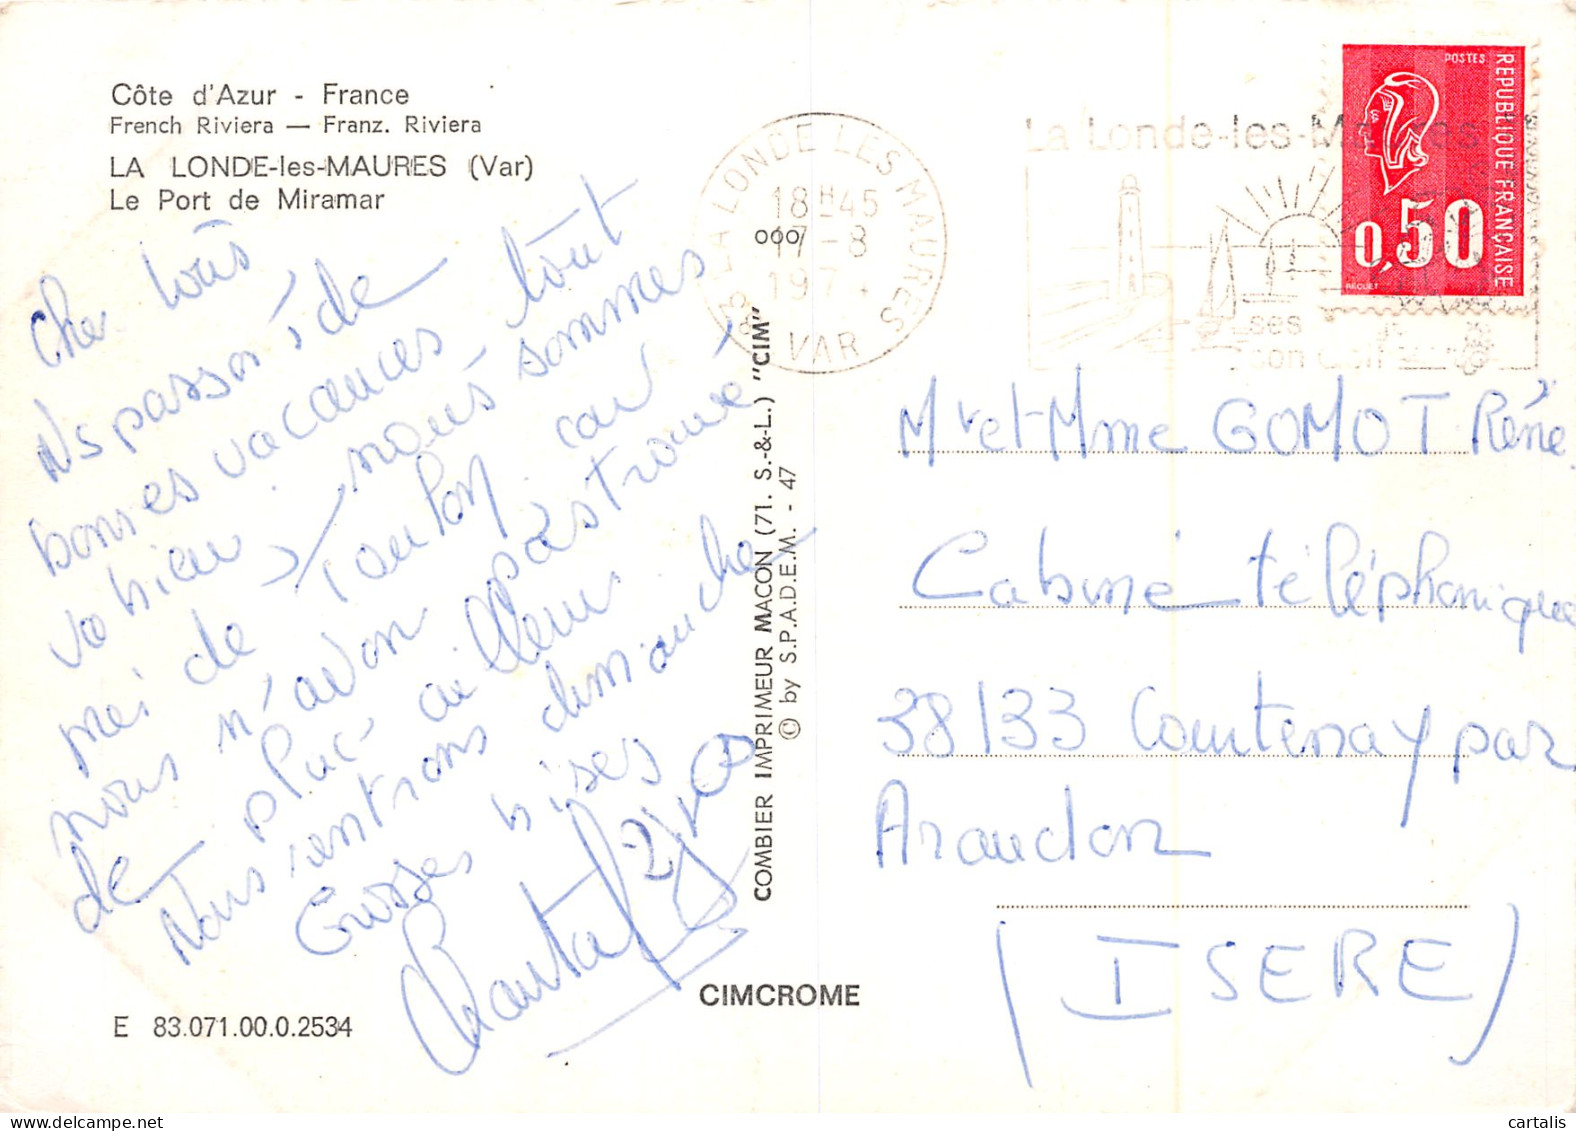 Côte d'Azur - France
French Riviera — Franz. Riviera
LA LONDE-les-MAURES (Var)
Le Port de Miramar
Cher tous
Ns passons de
bonnes vacances tout
va bien nous sommes
près de Toulon car
nous n'avon pas trouvé
de place ailleur
Nous rentrons dimanche
Grosses bises
Chantal
83 LA LONDE LES MAURES
18H45
17-8
197
VAR
000
La Londe-les-Maures
ses
son
POSTES
REPUBLIQUE FRANÇAISE
0,50
BEQUET
COMBIER IMPRIMEUR MACON (71. S.-&-L.) "CIM"
© by S.P.A.D.E.M. - 47
Mr et Mme GOMOT Réné.
Cabine téléphonique
38133 Courtenay par
Arandon
(ISERE)
CIMCROME
E 83.071.00.0.2534
cartalis